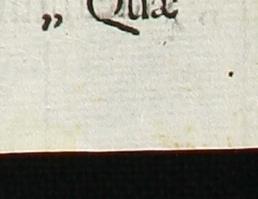 „ Quæ